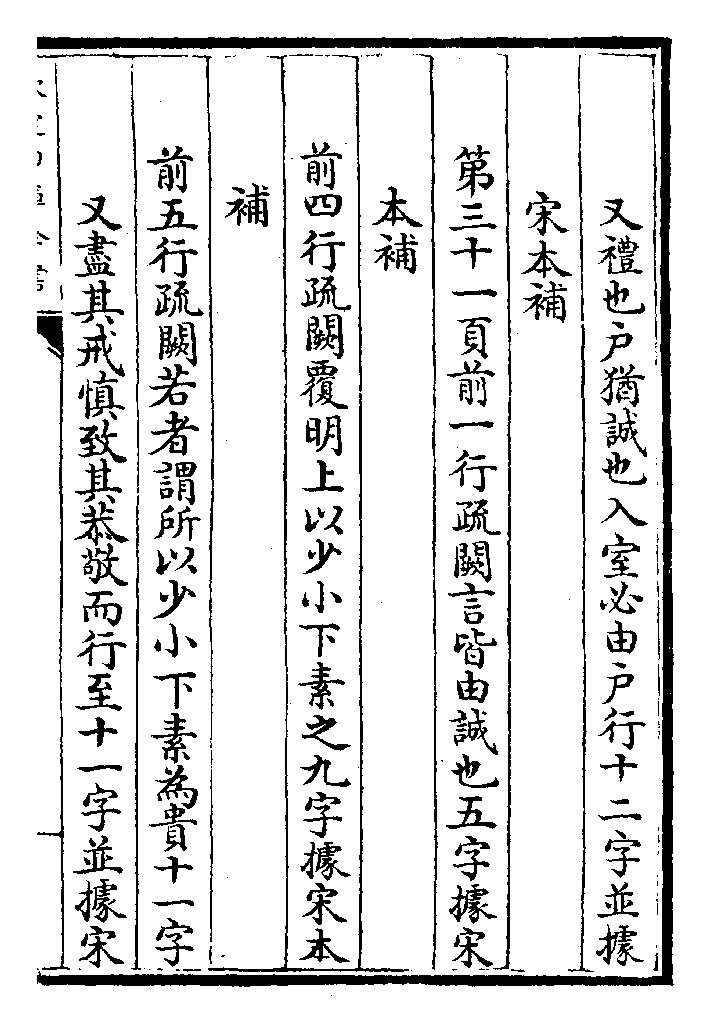 又禮也户猶誠也入室必由户行十二字並據
宋本補
第三十一頁前一行疏闕言皆由誠也五字據宋
本補
前四行疏闕覆明上以少小下素之九字據宋本
補
前五行疏闕若者謂所以少小下素為貴十一字
又盡其戒慎致其恭敬而行至十一字並據宋